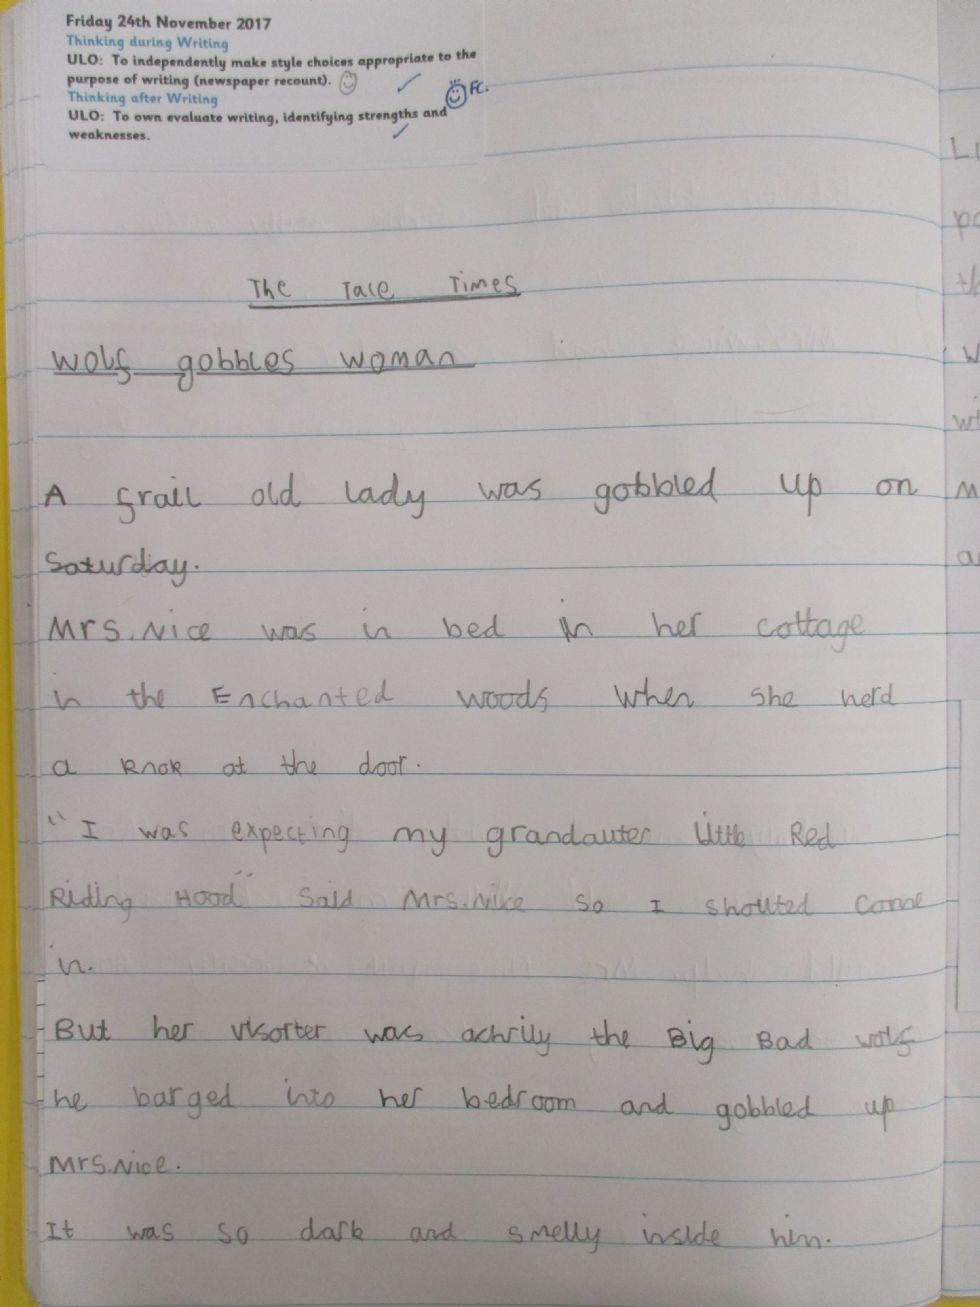 Friday 24th November 2017
Thinking during Writing
ULO: To independently make style choices appropriate to the
purpose of writing (newspaper recount).
FC.
Thinking after Writing
ULO: To own evaluate writing, identifying strengths and
weaknesses.
The Tale Times
Wolf gobbles woman
A frail old lady was gobbled up on
Saturday.
Mrs.Nice was in bed in her cottage
in the Enchanted woods when she herd
a knok at the door.
"I was expecting my grandauter Little Red
Riding Hood" Said Mrs.Nice so I shouted come
in.
But her visorter was achrily the Big Bad wolf
he barged into her bedroom and gobbled up
Mrs.Nice.
It was so dark and smelly inside him.